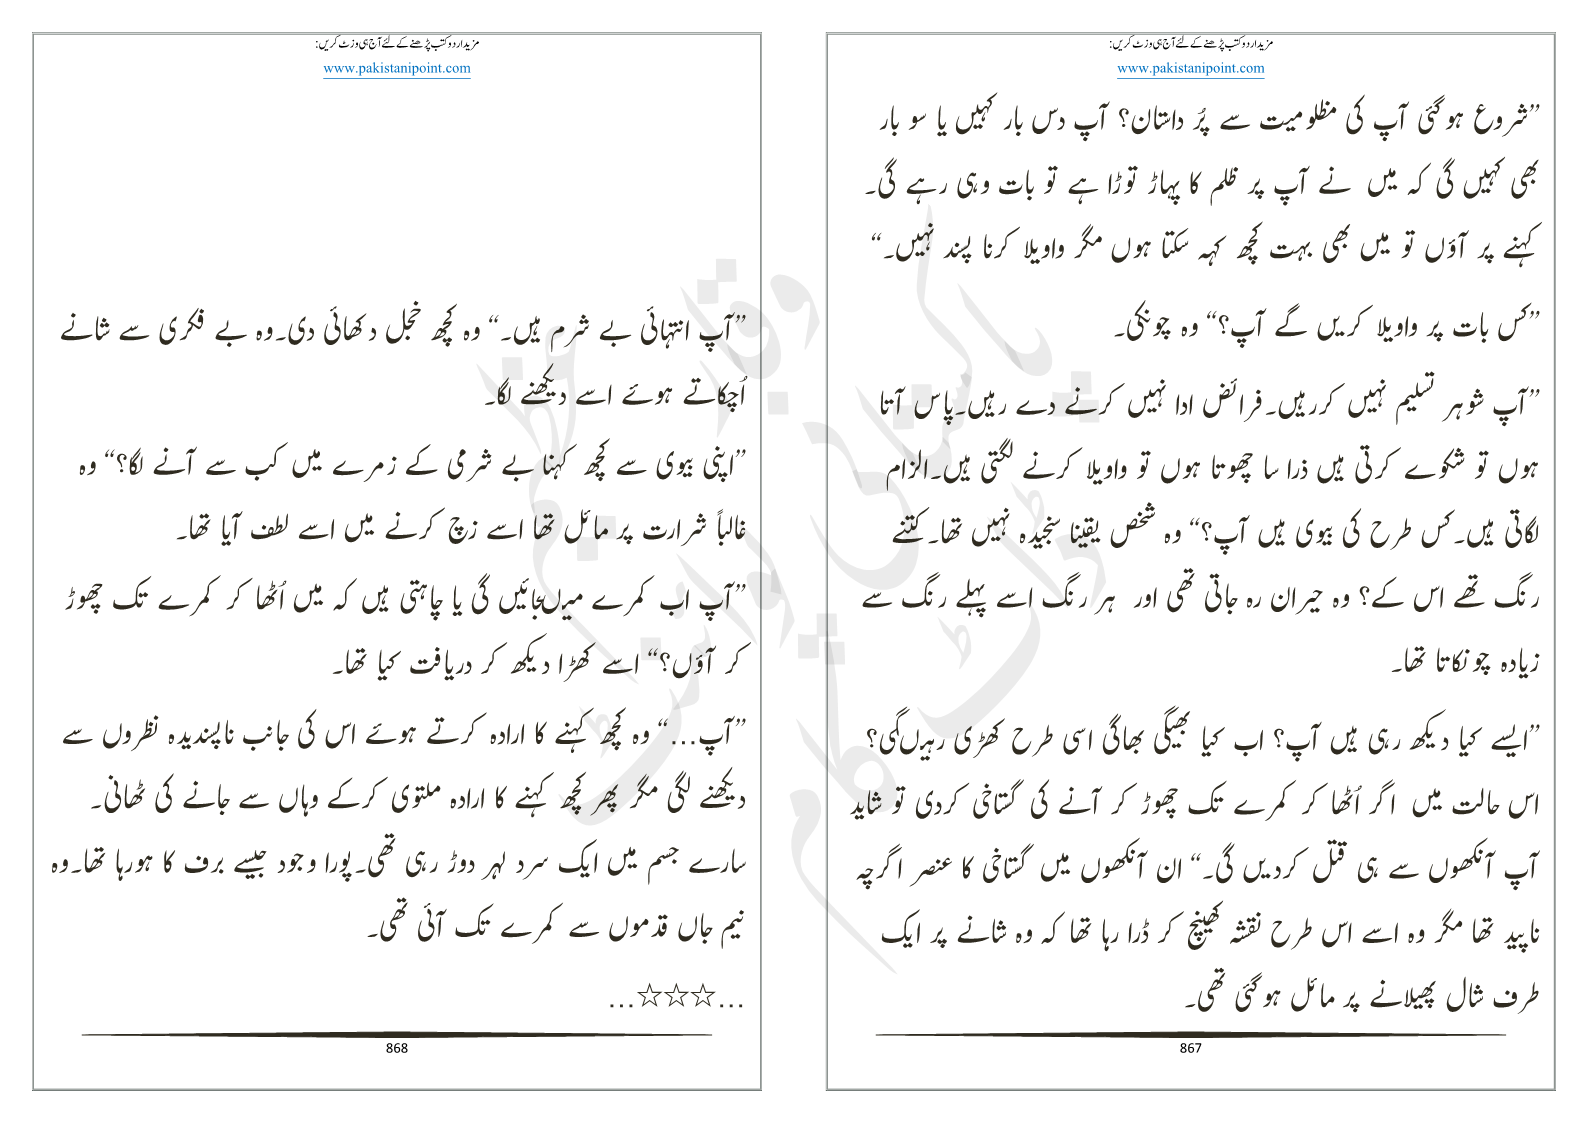 مزید اردو کتب پڑھنے کے لئے آج ہی وزٹ کریں:
www.pakistanipoint.com
”شروع ہوگئی آپ کی مظلومیت سے پُر داستان؟ آپ دس بار کہیں یا سو بار
بھی کہیں گی کہ میں نے آپ پر ظلم کا پہاڑ توڑا ہے تو بات وہی رہے گی۔
کہنے پر آؤں تو میں بھی بہت کچھ کہہ سکتا ہوں مگر واویلا کرنا پسند نہیں۔“
”کس بات پر واویلا کریں گے آپ؟“ وہ چونکی۔
”آپ شوہر تسلیم نہیں کررہیں۔فرائض ادا نہیں کرنے دے رہیں۔پاس آتا
ہوں تو شکوے کرتی ہیں ذرا سا چھوتا ہوں تو واویلا کرنے لگتی ہیں۔الزام
لگاتی ہیں۔کس طرح کی بیوی ہیں آپ؟“ وہ شخص یقینا سنجیدہ نہیں تھا۔کتنے
رنگ تھے اس کے؟ وہ حیران رہ جاتی تھی اور ہر رنگ اسے پہلے رنگ سے
زیادہ چونکاتا تھا۔
”ایسے کیا دیکھ رہی ہیں آپ؟ اب کیا بھیگی بھاگی اسی طرح کھڑی رہیں گی؟
اس حالت میں اگر اُٹھا کر کمرے تک چھوڑ کر آنے کی گستاخی کردی تو شاید
آپ آنکھوں سے ہی قتل کردیں گی۔“ ان آنکھوں میں گستاخی کا عنصر اگرچہ
ناپید تھا مگر وہ اسے اس طرح نقشہ کھینچ کر ڈرا رہا تھا کہ وہ شانے پر ایک
طرف شال پھیلانے پر مائل ہوگئی تھی۔
867
مزید اردو کتب پڑھنے کے لئے آج ہی وزٹ کریں:
www.pakistanipoint.com
”آپ انتہائی بے شرم ہیں۔“ وہ کچھ خجل دکھائی دی۔وہ بے فکری سے شانے
اُچکاتے ہوئے اسے دیکھنے لگا۔
”اپنی بیوی سے کچھ کہنا بے شرمی کے زمرے میں کب سے آنے لگا؟“ وہ
غالباً شرارت پر مائل تھا اسے زچ کرنے میں اسے لطف آیا تھا۔
”آپ اب کمرے میں جائیں گی یا چاہتی ہیں کہ میں اُٹھا کر کمرے تک چھوڑ
کر آؤں؟“ اسے کھڑا دیکھ کر دریافت کیا تھا۔
”آپ…“ وہ کچھ کہنے کا ارادہ کرتے ہوئے اس کی جانب ناپسندیدہ نظروں سے
دیکھنے لگی مگر پھر کچھ کہنے کا ارادہ ملتوی کرکے وہاں سے جانے کی ٹھانی۔
سارے جسم میں ایک سرد لہر دوڑ رہی تھی۔پورا وجود جیسے برف کا ہورہا تھا۔وہ
نیم جاں قدموں سے کمرے تک آئی تھی۔
…☆☆☆…
868